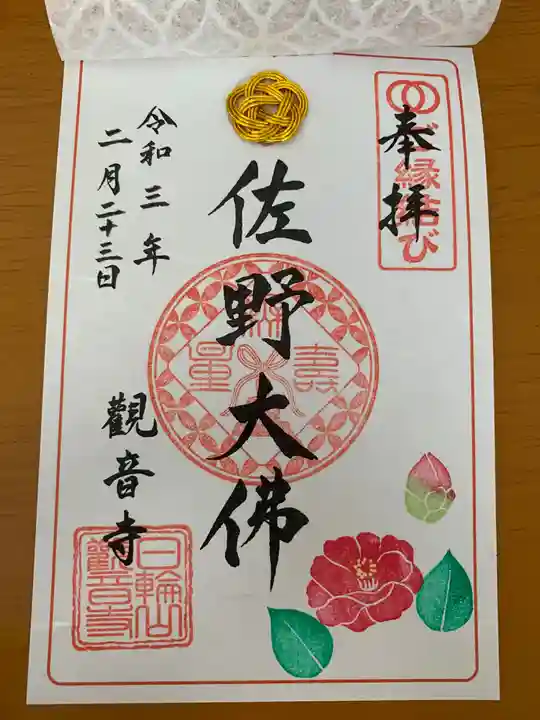 奉拝
ご縁結び
佐野大佛
無量壽
令和三年
二月二十三日
觀音寺
日輪山
觀音寺